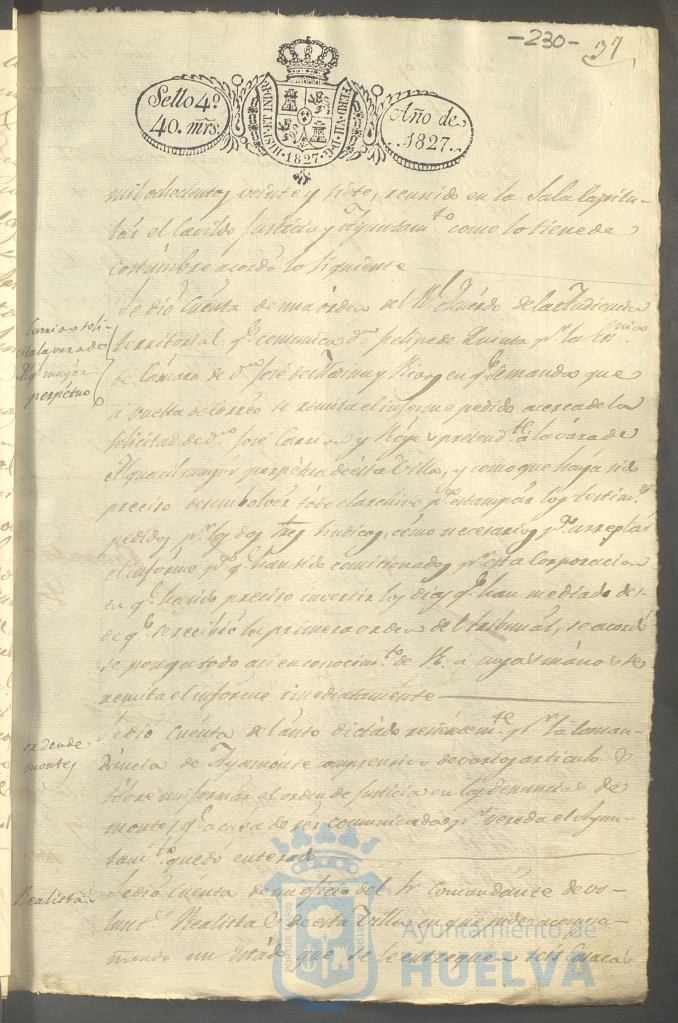 -230- 37
Sello 4º
40. mrs.
HISP. ET IND. R. FERD. VII. D. G. 1827.
Año de
1827.
mil ochocientos veinte y siete, reunido en la Sala Capitu-
lar el Cavildo Justicia y Ayuntamto. como lo tiene de
costumbre acordó lo siguiente
Se dió cuenta de una órden del Rl. Acuerdo de la Audiencia
territorial qe. comunica dn. Felipe de Quinta pr. la Esnia.
de Cámara de dn. José de Medina y en qe. se manda que
á vuelta de Correo se remita el informe pedido acerca de la
solicitud de dn. José Carrion y pretendte. á la vara de
Alguacil mayor perpétua de esta Villa, y como que haya sido
preciso desembolver todo el archivo pa. estampar los testims.
pedidos pr. los dos Sindicos, como necesarios pa. arreglar
el informe pa. qe. han sido comicionados pr. esta Corporacion
en qe. ha sido preciso invertir los dias qe. han mediado des-
de qe. se recibió la primera orden del tribunal, se acordó
se ponga todo asi en conocimto. de á cuyas manos se
remita el informe imediatamente
Se dió cuenta del auto dictado recientemte. pr. la Coman-
dancia de Ayamonte comprensivo de varios articulos
sobre uniformar al orden de Justicia en las denuncias de
montes qe. acava de ser comunicado pr. vereda el Ayun-
tamto. quedó enterado
Se dió cuenta de un oficio del Sr. Comandante de vo-
lunts. Realistas de esta Villa en que pide acompa-
ñando un Estado que se le entreguen seis
Carrion soli-
cita la vara de
Algl. mayor
perpétuo
orden de
montes
Realistas
PORTUS MARIS
CUSTODIA
Ayuntamiento de
HUELVA